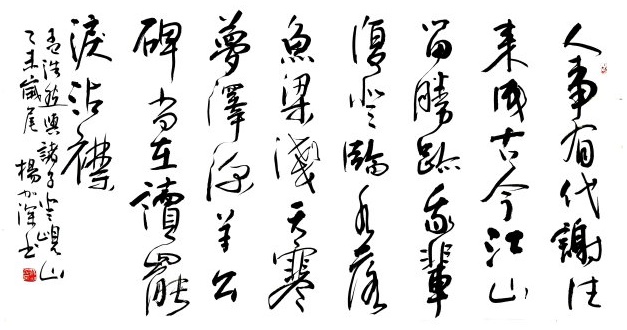 人事有代謝往
來成古今江山
留勝跡我輩
復登臨水落
魚梁淺天寒
夢澤深羊公
碑尚在讀罷
淚沾襟
孟浩然與諸子登峴山
乙未歲尾 楊加深書